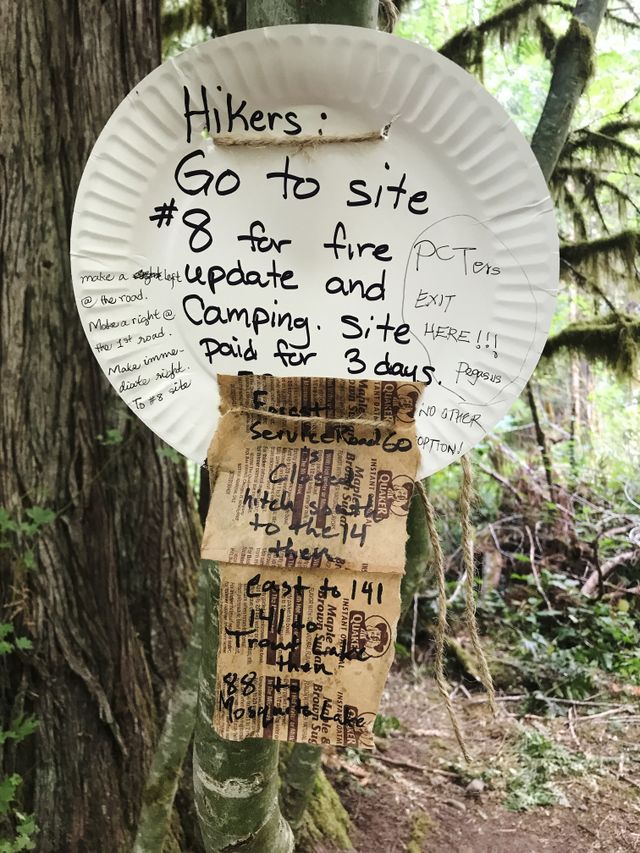 Hikers:
Go to site
#8 for fire
update and
Camping. Site
paid for 3 days.
make a left
@ the road.
Make a right @
the 1st road.
Make imme-
diate right.
To #8 site
PCTers
EXIT
HERE!!!
Pegasus
NO OTHER
OPTION!
Forest
Service Road 60
is
Closed
hitch south
to the 14
then
East to 141
141 to
Trout Lake
then
88 to
Mosquito Lake
INSTANT
QUAKER
Maple &
Brown Sugar
INSTANT
QUAKER
Maple &
Brown Sugar